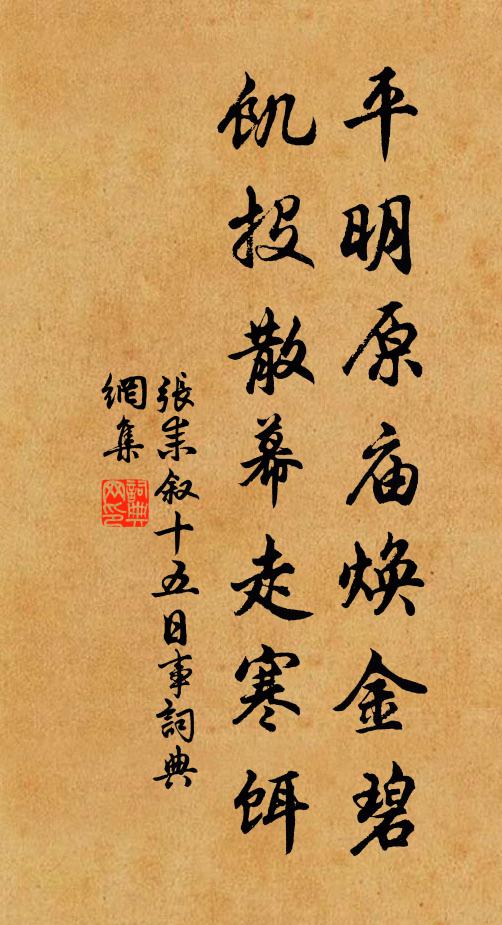 平明原庙焕金碧
饥投散幕走寒饵
張耒叙十五日事詞典
網集
詞典
网印